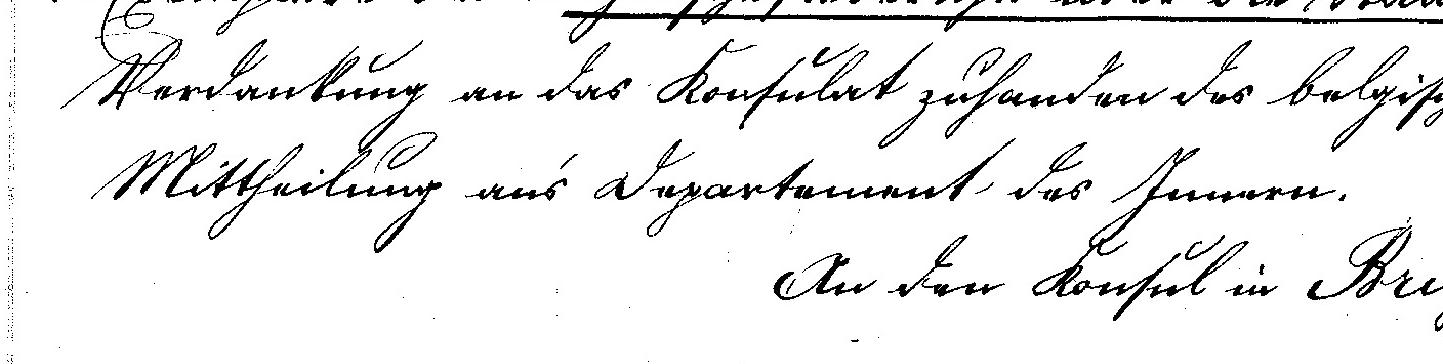 Verdankung an das Konsulat zuhanden des belgisc
Mittheilung an's Departement des Innern.
An den Konsul in Brü